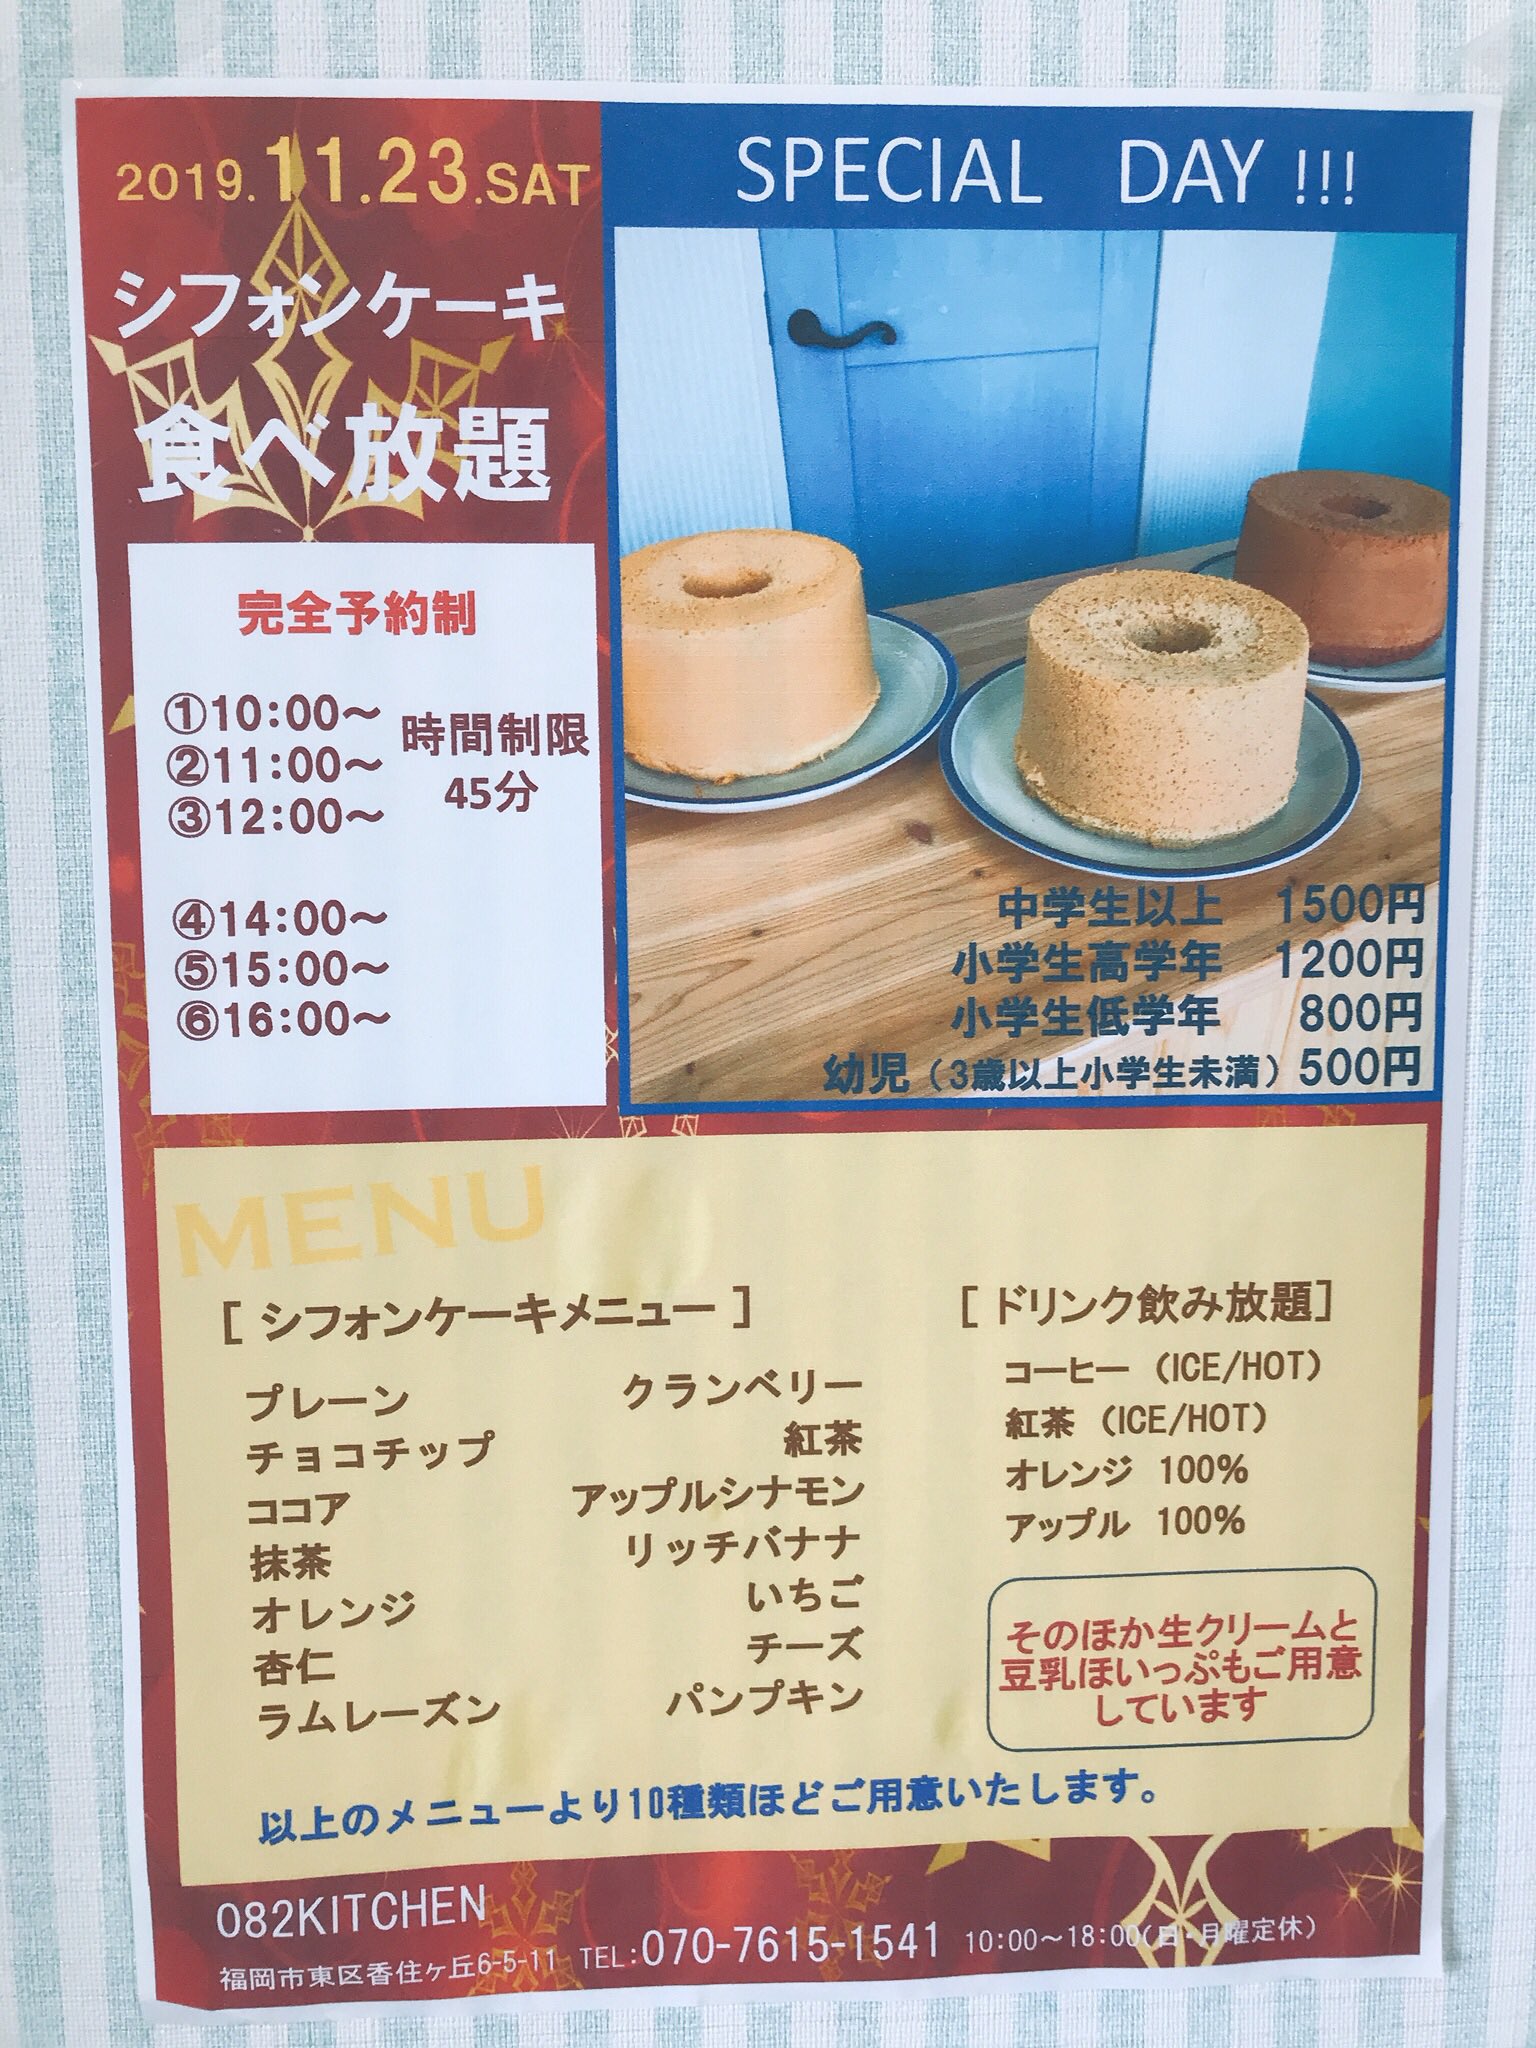 2019.11.23.SAT
シフォンケーキ
食べ放題
SPECIAL DAY !!!
完全予約制
①10:00～
②11:00～
③12:00～
時間制限
45分
④14:00～
⑤15:00～
⑥16:00～
中学生以上 1500円
小学生高学年 1200円
小学生低学年 800円
幼児（3歳以上小学生未満）500円
MENU
[ シフォンケーキメニュー ]
プレーン
チョコチップ
ココア
抹茶
オレンジ
杏仁
ラムレーズン
クランベリー
紅茶
アップルシナモン
リッチバナナ
いちご
チーズ
パンプキン
[ ドリンク飲み放題]
コーヒー（ICE/HOT）
紅茶（ICE/HOT）
オレンジ 100%
アップル 100%
そのほか生クリームと
豆乳ほいっぷもご用意
しています
以上のメニューより10種類ほどご用意いたします。
082KITCHEN
福岡市東区香住ヶ丘6-5-11 TEL:070-7615-1541 10:00～18:00(日・月曜定休)